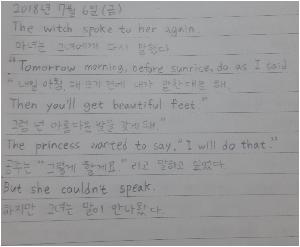 2018년 7월 6일 (금)
The witch spoke to her again.
마녀는 그녀에게 다시 말했다.
"Tomorrow morning, before sunrise, do as I said
"내일 아침, 해 뜨기 전에 내가 말한대로 해.
Then you'll get beautiful feet."
그럼 넌 아름다운 발을 갖게 돼."
The princess wanted to say, "I will do that."
공주는 "그렇게 할게요." 라고 말하고 싶었다.
But she couldn't speak.
하지만 그녀는 말이 안나왔다.